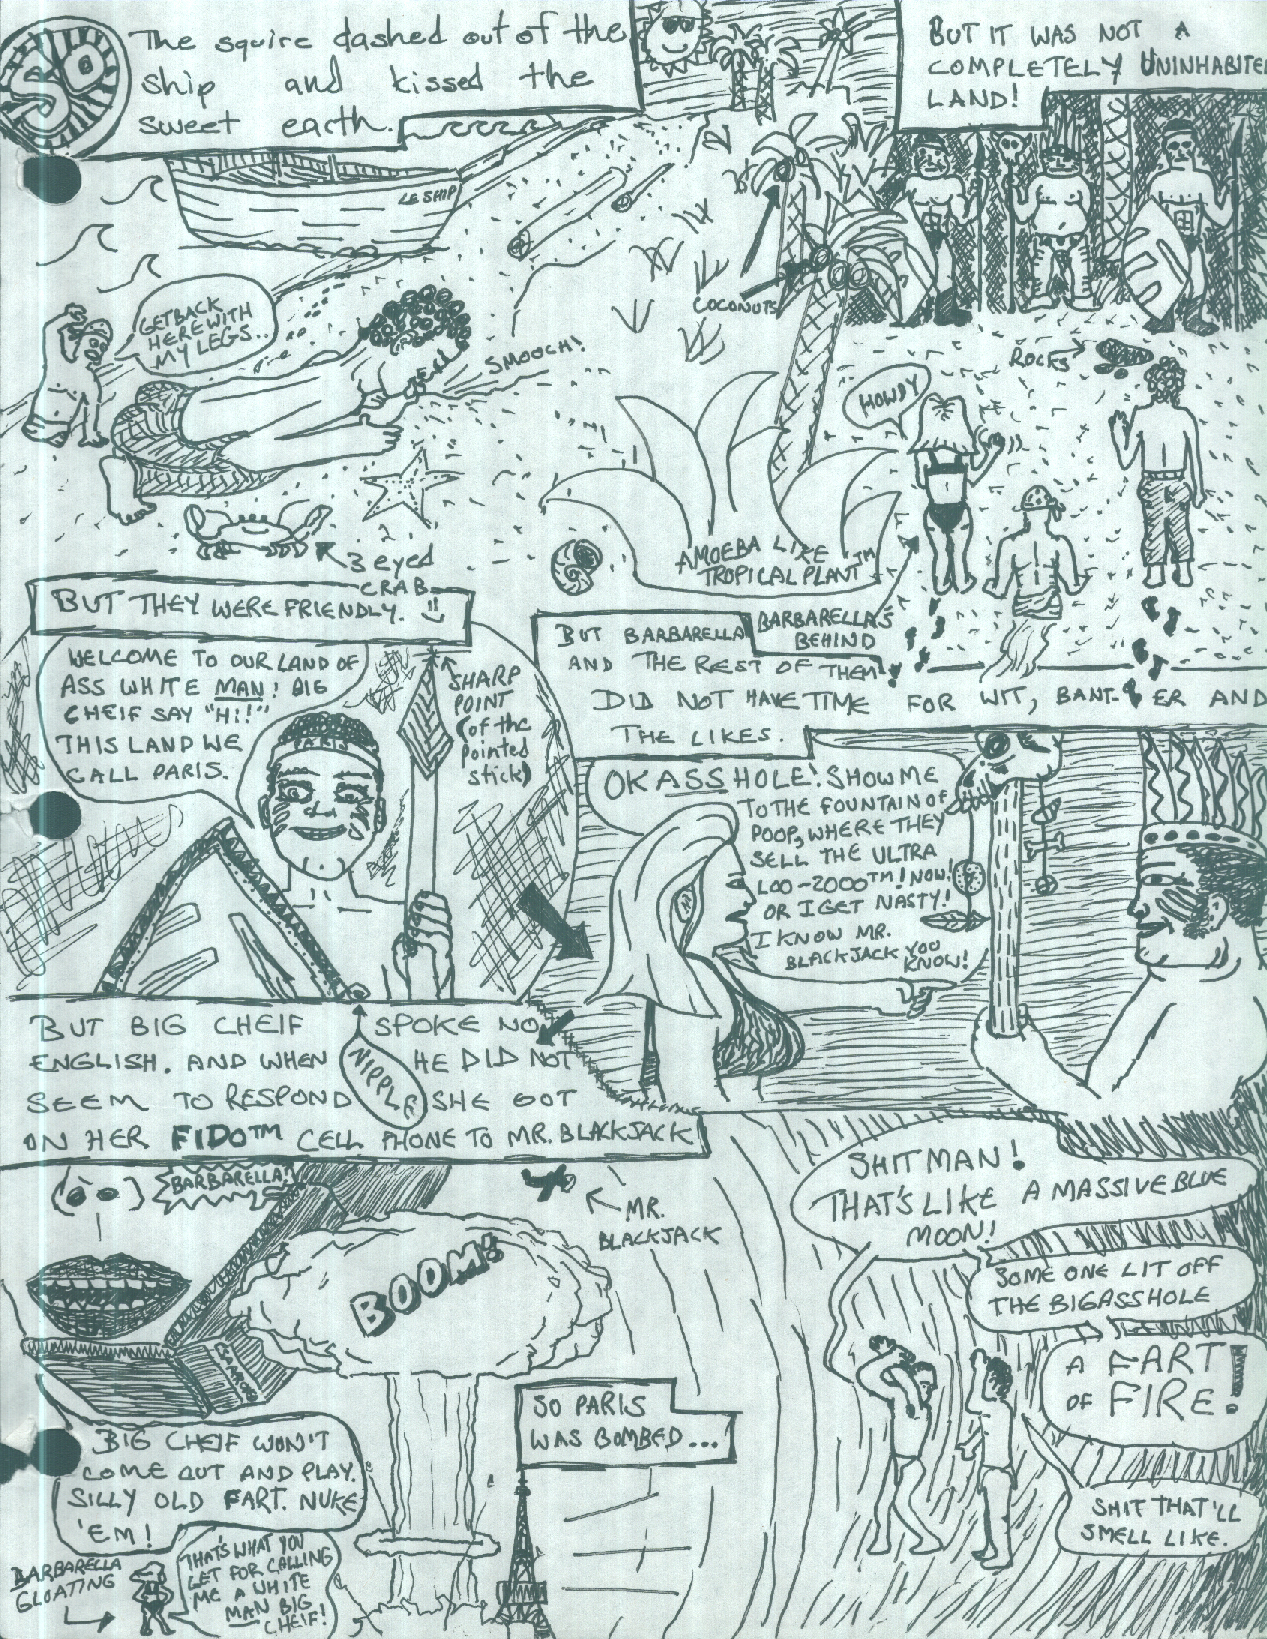 The squire dashed out of the
ship and kissed the
sweet earth.
BUT IT WAS NOT A
COMPLETELY UNINHABITED
LAND!
LE SHIP
COCONUTS
GET BACK
HERE WITH
MY LEGS..
SMOOCH!
ROCKS
HOWDY
3 eyed
CRAB
AMOEBA LIKE
TROPICAL PLANT™
BARBARELLA'S
BEHIND
BUT THEY WERE FRIENDLY. :)
WELCOME TO OUR LAND OF
ASS WHITE MAN! BIG
CHEIF SAY "HI!"
THIS LAND WE
CALL PARIS.
PARIS
SHARP
POINT
(of the
pointed
stick)
BUT BARBARELLA
AND THE REST OF THEM
DID NOT HAVE TIME FOR WIT, BANT-ER AND
THE LIKES.
OK ASSHOLE! SHOW ME
TO THE FOUNTAIN OF
POOP, WHERE THEY
SELL THE ULTRA
LOO-2000™! NOW!
OR I GET NASTY!
I KNOW MR.
BLACKJACK YOU
KNOW!
BUT BIG CHEIF SPOKE NO
ENGLISH. AND WHEN HE DID NOT
SEEM TO RESPOND SHE GOT
ON HER FIDO™ CELL PHONE TO MR. BLACKJACK
NIPPLE
BARBARELLA!
MR.
BLACKJACK
BOOM!
SHIT MAN!
THAT'S LIKE A MASSIVE BLUE
MOON!
SOME ONE LIT OFF
THE BIGASSHOLE
A FART
OF FIRE!
SHIT THAT'LL
SMELL LIKE.
SO PARIS
WAS BOMBED...
BIG CHEIF WON'T
COME OUT AND PLAY.
SILLY OLD FART. NUKE
'EM!
BARBARELLA
GLOATING
THAT'S WHAT YOU
GET FOR CALLING
ME A WHITE
MAN BIG
CHEIF!